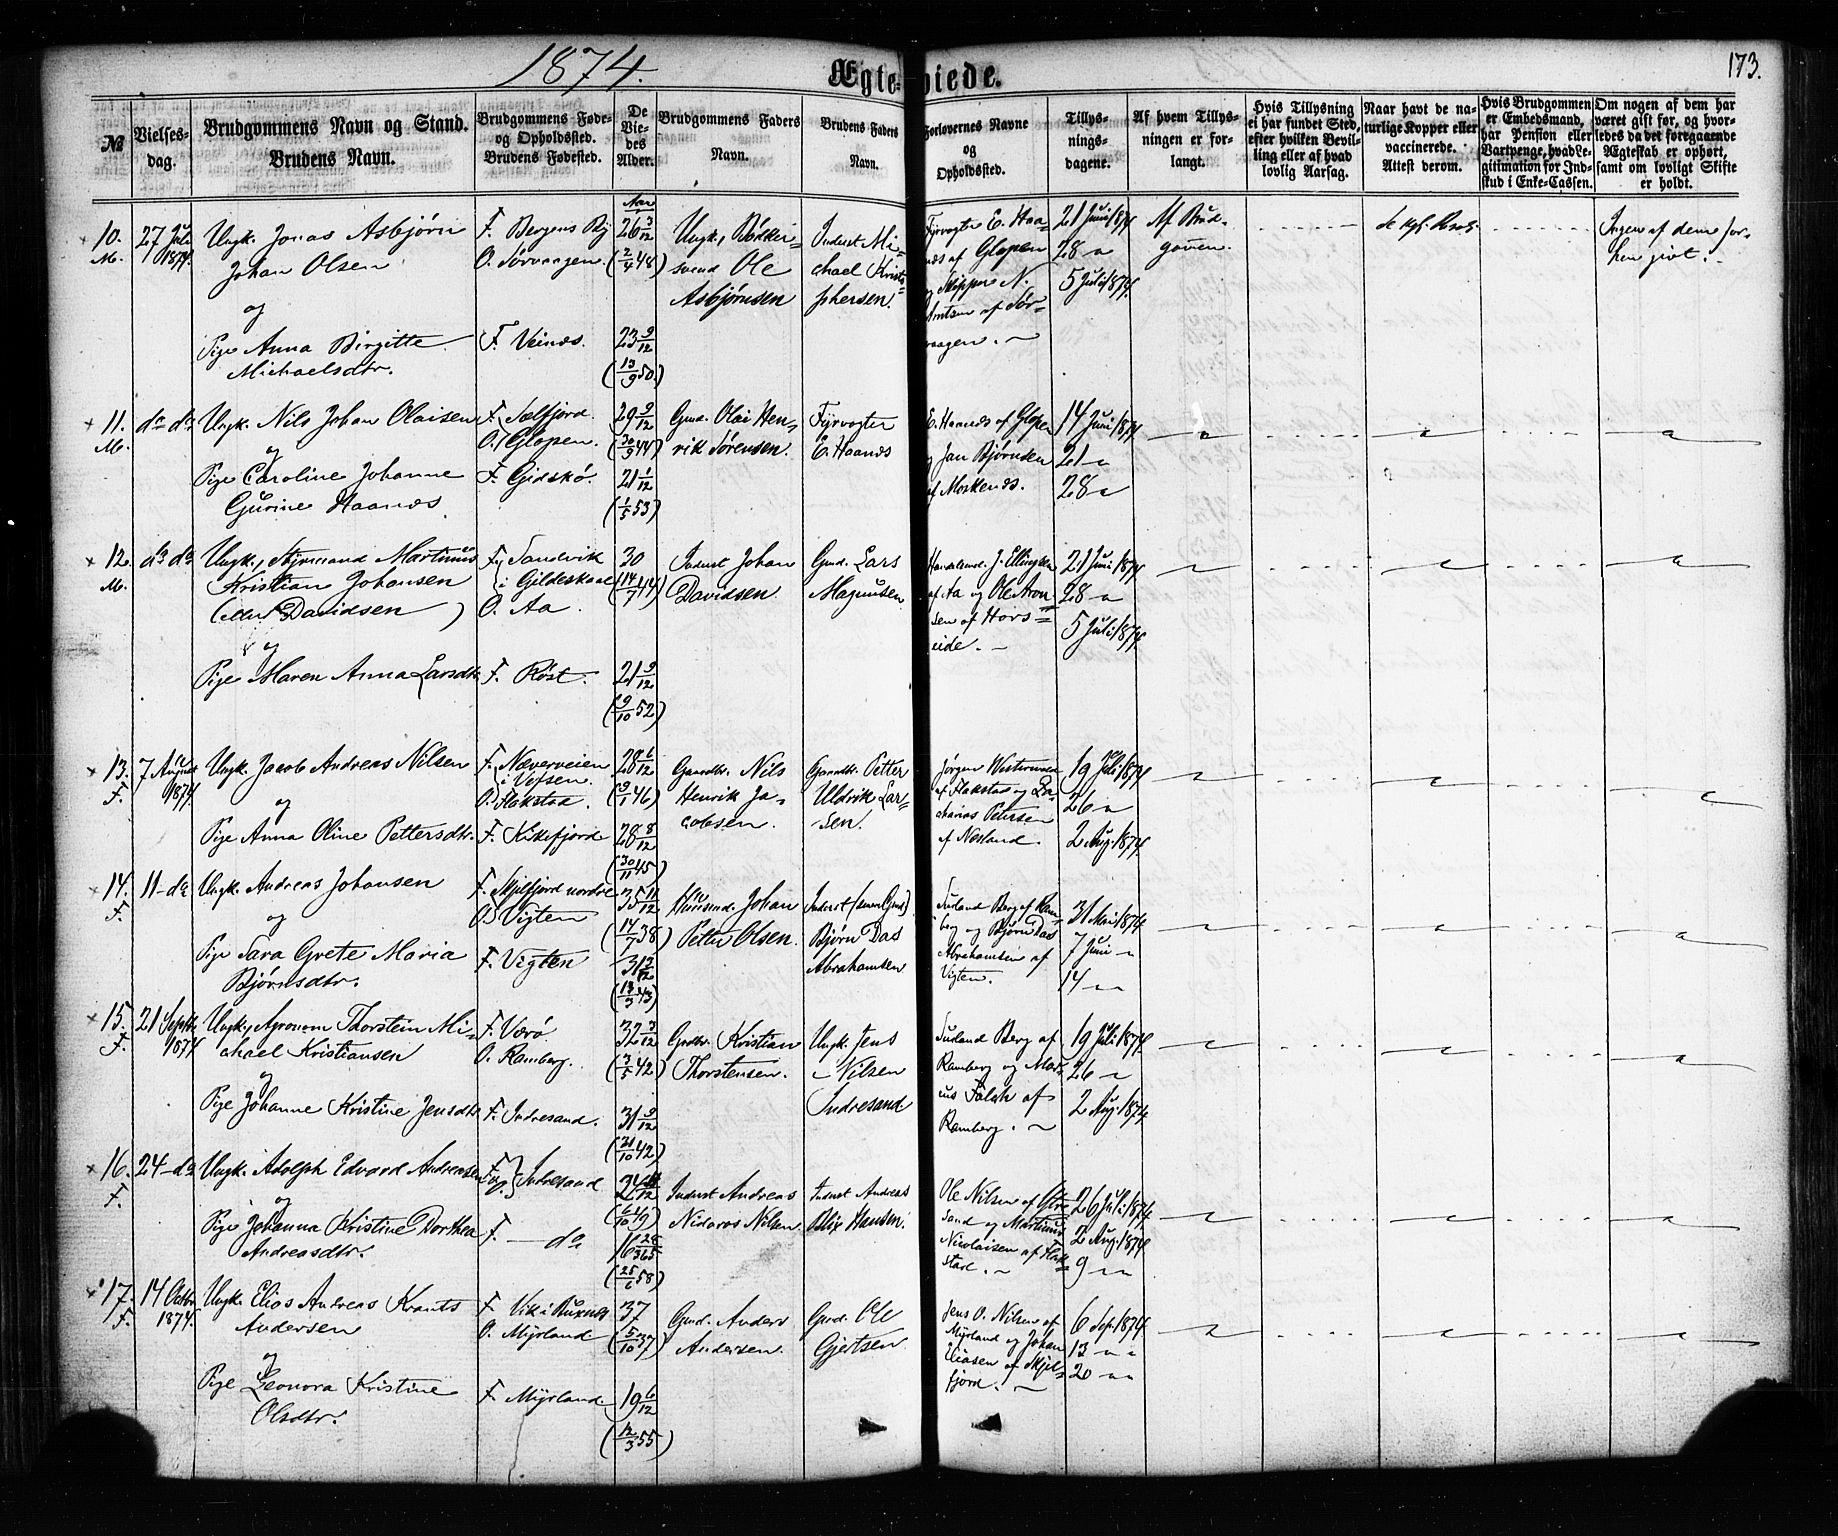 1874.
Ægte-
viede.
173.
№
Vielses-
dag.
Brudgommens Navn og Stand.
Brudens Navn.
Brudgommens Føde-
og Opholdssted.
Brudens Fødested.
De
Vie-
des
Alder.
Brudgommens Faders
Navn.
Brudens Faders
Navn.
Forlovernes Navne
og
Opholdssted.
Tillys-
nings-
dagene.
Af hvem Tillys-
ningen er for-
langt.
Hvis Tillysning
ei har fundet Sted,
efter hvilken Bevil-
ling eller af hvad
lovlig Aarsag.
Naar havt de na-
turlige Kopper eller
vaccinerede.
Attest derom.
Hvis Brudgommen
er Embedsmand,
har Pension eller
Vartpenge, hvad Le-
gitimation for Ind-
skud i Enke-Cassen.
Om nogen af dem har
været gift før, og hvor-
ledes da det foregaaende
Ægteskab er ophørt,
samt om lovligt Skifte
er holdt.
Aar
10.
M.
27 Juli
1874.
Ungk. Jonas Asbjørn
Johan Olsen
og
Pige Anna Birgitte
Michaelsdtr.
F. Bergens By
O. Sørvaagen.
F. Veinæs.
26 3/12
(2/4 48)
23 9/12
(13/9 50.)
Ungk., Bödker-
svend Ole
Asbjørnsen
Inderst Mi-
chael Kristo-
phersen.
Fyrvogter E. Haa-
næs af Glopen
og Skipper N.
Arntsen af Sør-
vaagen. ~
21 Juni 1874
28 "
5 Juli 1874.
Af Brud-
gommen.
Ingen af dem før-
hen givt.
11.
M.
do do
Ungk. Nils Johan Olaisen
og
Pige Caroline Johanne
Gurine Haanæs
F. Selfjord.
O. Glopen.
F. Gidskø.
29 9/12
(30/9 44)
21 1/12
(1/5 53)
Gmd. Olai Hen-
rik Sørensen.
Fyrvogter
E. Haanæs
E. Haanæs af Glopen
og Jan Bjørnsen
af Moskenæs.
14 Juni 1874
21 "
28 "
12.
M.
do do
Ungk., Styrmand Martinus
Kristian Johansen
(eller Davidsen)
og
Pige Maren Anna Larsdtr
F. Sandvik
i Gildeskaal
O. Aa.
F. Røst.
30
(14/7 44)
21 9/12
(9/10 52)
Inderst Johan
Davidsen
Gmd. Lars
Magnusen
Handelsmd. J. Ellingsen
af Aa og Ole Aron-
sen af Hors-
eide. -
21 Juni 1874
28 "
5 Juli 1874.
13.
F.
7 August
1874.
Ungk. Jacob Andreas Nilsen
og
Pige Anna Oline Pettersdtr.
F. Næverveien
i Vefsen.
O. Flakstad.
F. Kikefjord
28 6/12
28 8/12
(30/11 45)
Gaardbr. Nils
Henrik Ja-
cobsen.
Gaardbr. Petter
Uldrik Lar-
sen.
Jørgen Westervold
af Flakstad og Za-
charias Petersen
af Nesland.
19 Juli 1874
26 "
2 Aug. 1874.
14.
F.
11 - do
Ungk. Andreas Johansen
og
Pige Sara Grete Maria
Bjørnsdtr.
F. Skjelfjord nordre
O. Vigten
F. Vigten
35 11/12
(14/7 38)
(13/3 43)
Huusmd. Johan
Petter Olsen.
Inderst
Bjørn Das
Abrahamsen
Suland Berg af Ram-
berg og Bjørn Das
Abrahamsen af
Vigten.
31 Mai 1874
7 Juni "
14 " "
15.
F.
21 Septbr
1874.
Ungk., Agronom Thorstein Mi-
chael Kristiansen
og
Pige Johanne Kristine Jensdtr
F. Værø
O. Ramberg.
F. Indresand.
32 3/12
(3/5 42)
31 9/12
(21/10 42)
Grdbr. Kristian
Thorstensen.
Ungk. Jens
Nilsen
Indresand
Suland Berg af
Ramberg og Mari-
us Falch af
Ramberg. ~
19 Juli 1874
26 "
2 Aug. 1874
16.
F.
24 - do
Ungk. Adolph Edvard Andreasen
og
Pige Johanna Kristine Dorthea
Andreasdtr.
F. og O. Indresand
F. — do
(6/10 49)
16 28/365
(25/6 58)
Inderst Andreas
Nidaros Nilsen
Inderst Andreas
Blix Hansen.
Ole Nilsen af Ytre-
sand og Martinus
Nicolaisen af Flak-
stad. -
26 Juli 1874
2 Aug. 1874
9 " "
17.
F.
14 Octbr.
1874.
Ungk. Elias Andreas Krants
Andersen
og
Pige Leonora Kristine
Olsdtr.
F. Vik i Buxnæs
O. Myrland
F. Myrland
37
(5/10 37)
19 6/12
(12/3 55)
Gmd. Anders
Andersen.
Gmd. Ole
Gjertsen
Jens O. Nilsen af
Myrland og Johan
Eliasen af Skjel-
fjord. ~
6 Sep. 1874
13 " "
20 " "